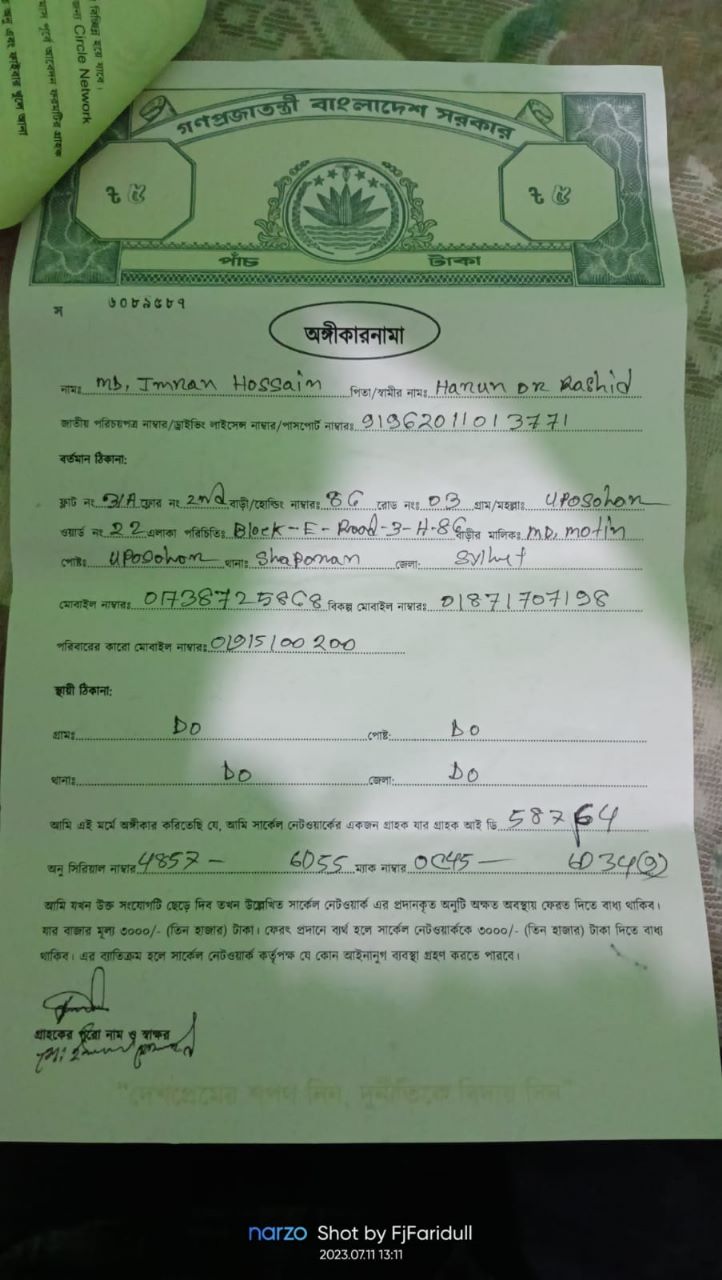 বিচ্ছিন্ন হয়ে যাবে।
জন্য Circle Network
গণপ্রজাতন্ত্রী বাংলাদেশ সরকার
৳ ৫
৳ ৫
পাঁচ টাকা
স ৬০৮৯৫৮৭
অঙ্গীকারনামা
নামঃ MD, Imran Hossain পিতা/স্বামীর নামঃ Harun or Rashid
জাতীয় পরিচয়পত্র নাম্বার/ড্রাইভিং লাইসেন্স নাম্বার/পাসপোর্ট নাম্বারঃ 91962011013771
বর্তমান ঠিকানা:
ফ্লাট নং 3/A ফ্লোর নং 2nd বাড়ী/হোল্ডিং নাম্বারঃ 8G রোড নংঃ 03 গ্রাম/মহল্লাঃ Uposohon
ওয়ার্ড নং 22 এলাকা পরিচিতিঃ Block-E-Road-3-H-8G বাড়ীর মালিকঃ MD, Motin
পোষ্টঃ Uposohon থানাঃ Shaporan জেলা: Sylhet
মোবাইল নাম্বারঃ 01738725868 বিকল্প মোবাইল নাম্বারঃ 01871707198
পরিবারের কারো মোবাইল নাম্বারঃ 01915100200
স্থায়ী ঠিকানা:
গ্রামঃ DO পোষ্ট: DO
থানাঃ DO জেলা: DO
আমি এই মর্মে অঙ্গীকার করিতেছি যে, আমি সার্কেল নেটওয়ার্কের একজন গ্রাহক যার গ্রাহক আই ডি 58764
অনু সিরিয়াল নাম্বার 4857 - 6055 ম্যাক নাম্বার 0C45 - 6D34(9)
আমি যখন উক্ত সংযোগটি ছেড়ে দিব তখন উল্লেখিত সার্কেল নেটওয়ার্ক এর প্রদানকৃত অনুটি অক্ষত অবস্থায় ফেরত দিতে বাধ্য থাকিব।
যার বাজার মূল্য ৩০০০/- (তিন হাজার) টাকা। ফেরৎ প্রদানে ব্যর্থ হলে সার্কেল নেটওয়ার্ককে ৩০০০/- (তিন হাজার) টাকা দিতে বাধ্য
থাকিব। এর ব্যতিক্রম হলে সার্কেল নেটওয়ার্ক কর্তৃপক্ষ যে কোন আইনানুগ ব্যবস্থা গ্রহণ করতে পারবে।
গ্রাহকের পুরো নাম ও স্বাক্ষর
"দেশপ্রেমের শপথ নিন, দুর্নীতিকে বিদায় দিন"
narzo Shot by FjFaridull
2023.07.11 13:11